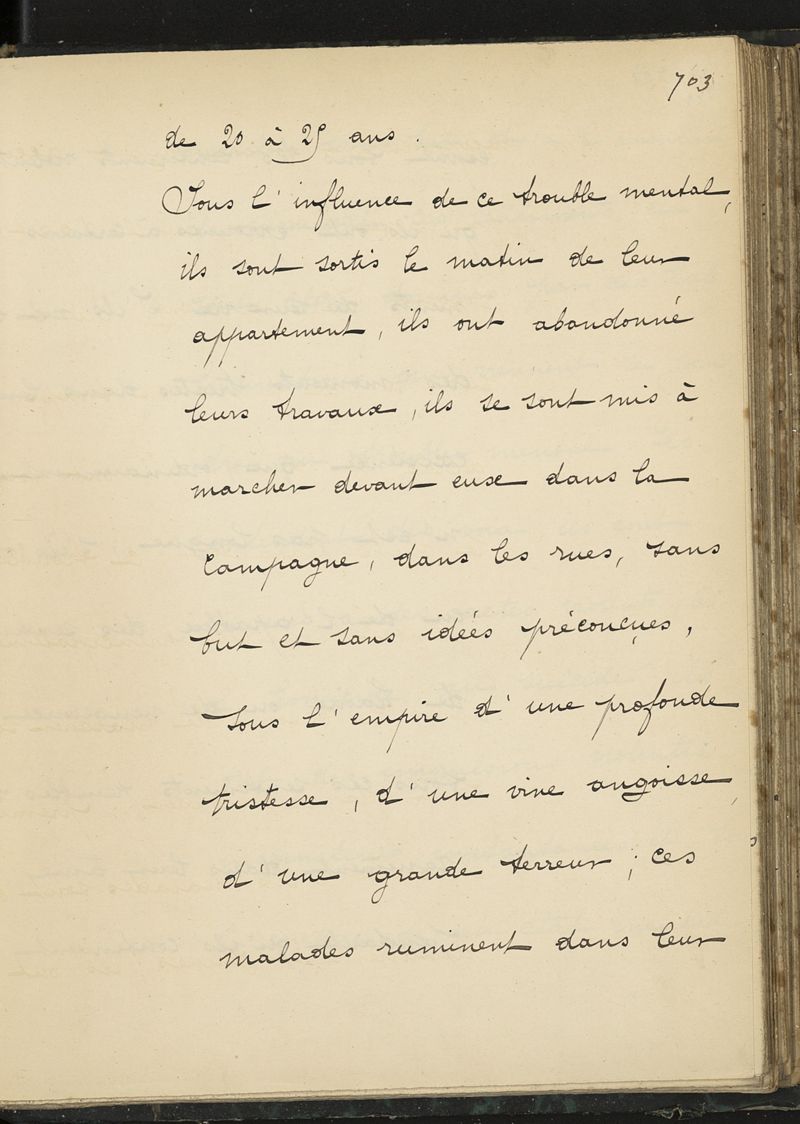 703
de 20 à 25 ans.
Sous l'influence de ce trouble mental,
ils sont sortis le matin de leur
appartement, ils ont abandonné
leurs travaux, ils se sont mis à
marcher devant eux dans la
campagne, dans les rues, sans
but et sans idées préconçues,
sous l'empire d'une profonde
tristesse, d'une vive angoisse,
d'une grande terreur; ces
malades ruminent dans leur